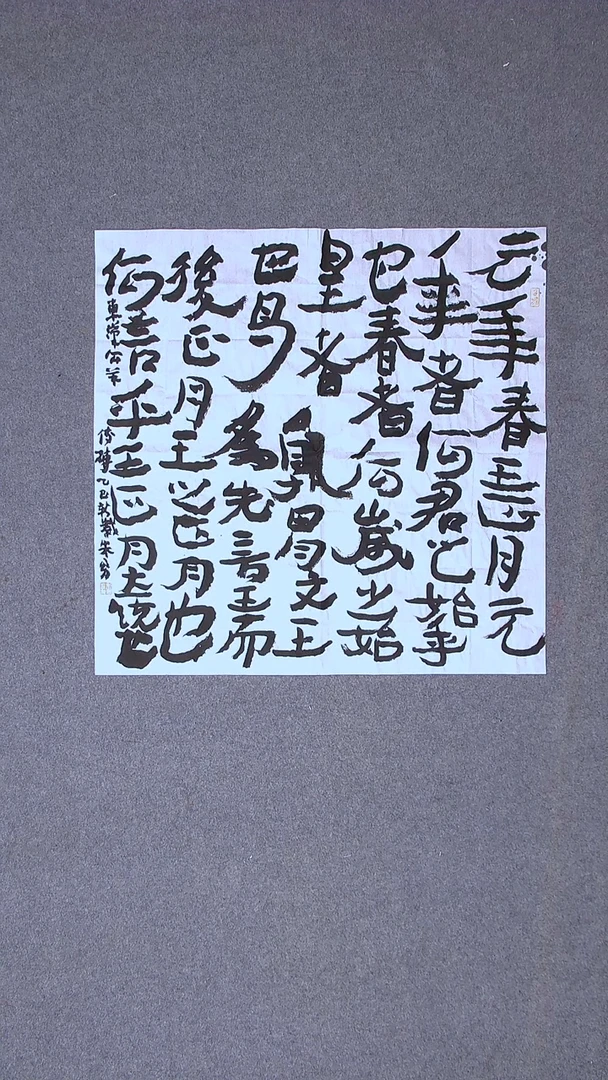 元年春王正月元
年者何君之始年
也春者何歲之始
皇者孰胃文王
也曷為先言王而
後正月王以正月也
何言乎王正月大統也
東漢公羊
傳磚乙巳新歲